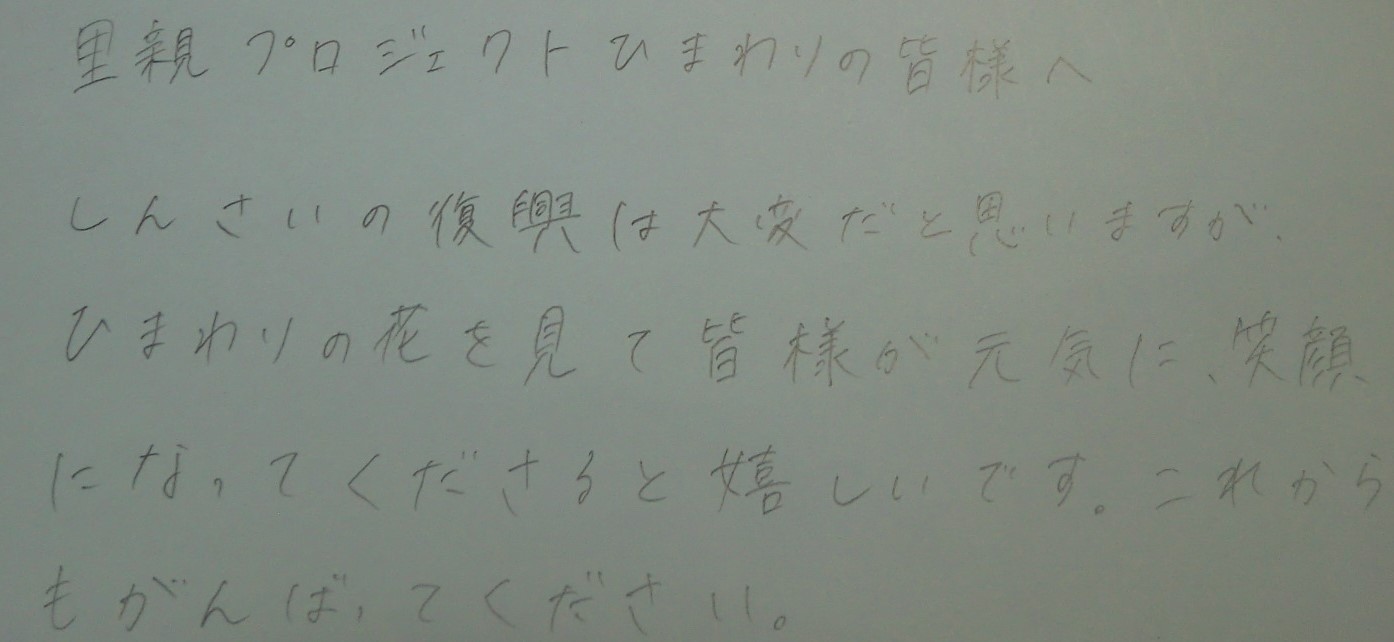 里親プロジェクトひまわりの皆様へ
しんさいの復興は大変だと思いますが、
ひまわりの花を見て皆様が元気に、笑顔
になってくださると嬉しいです。これから
もがんばってください。